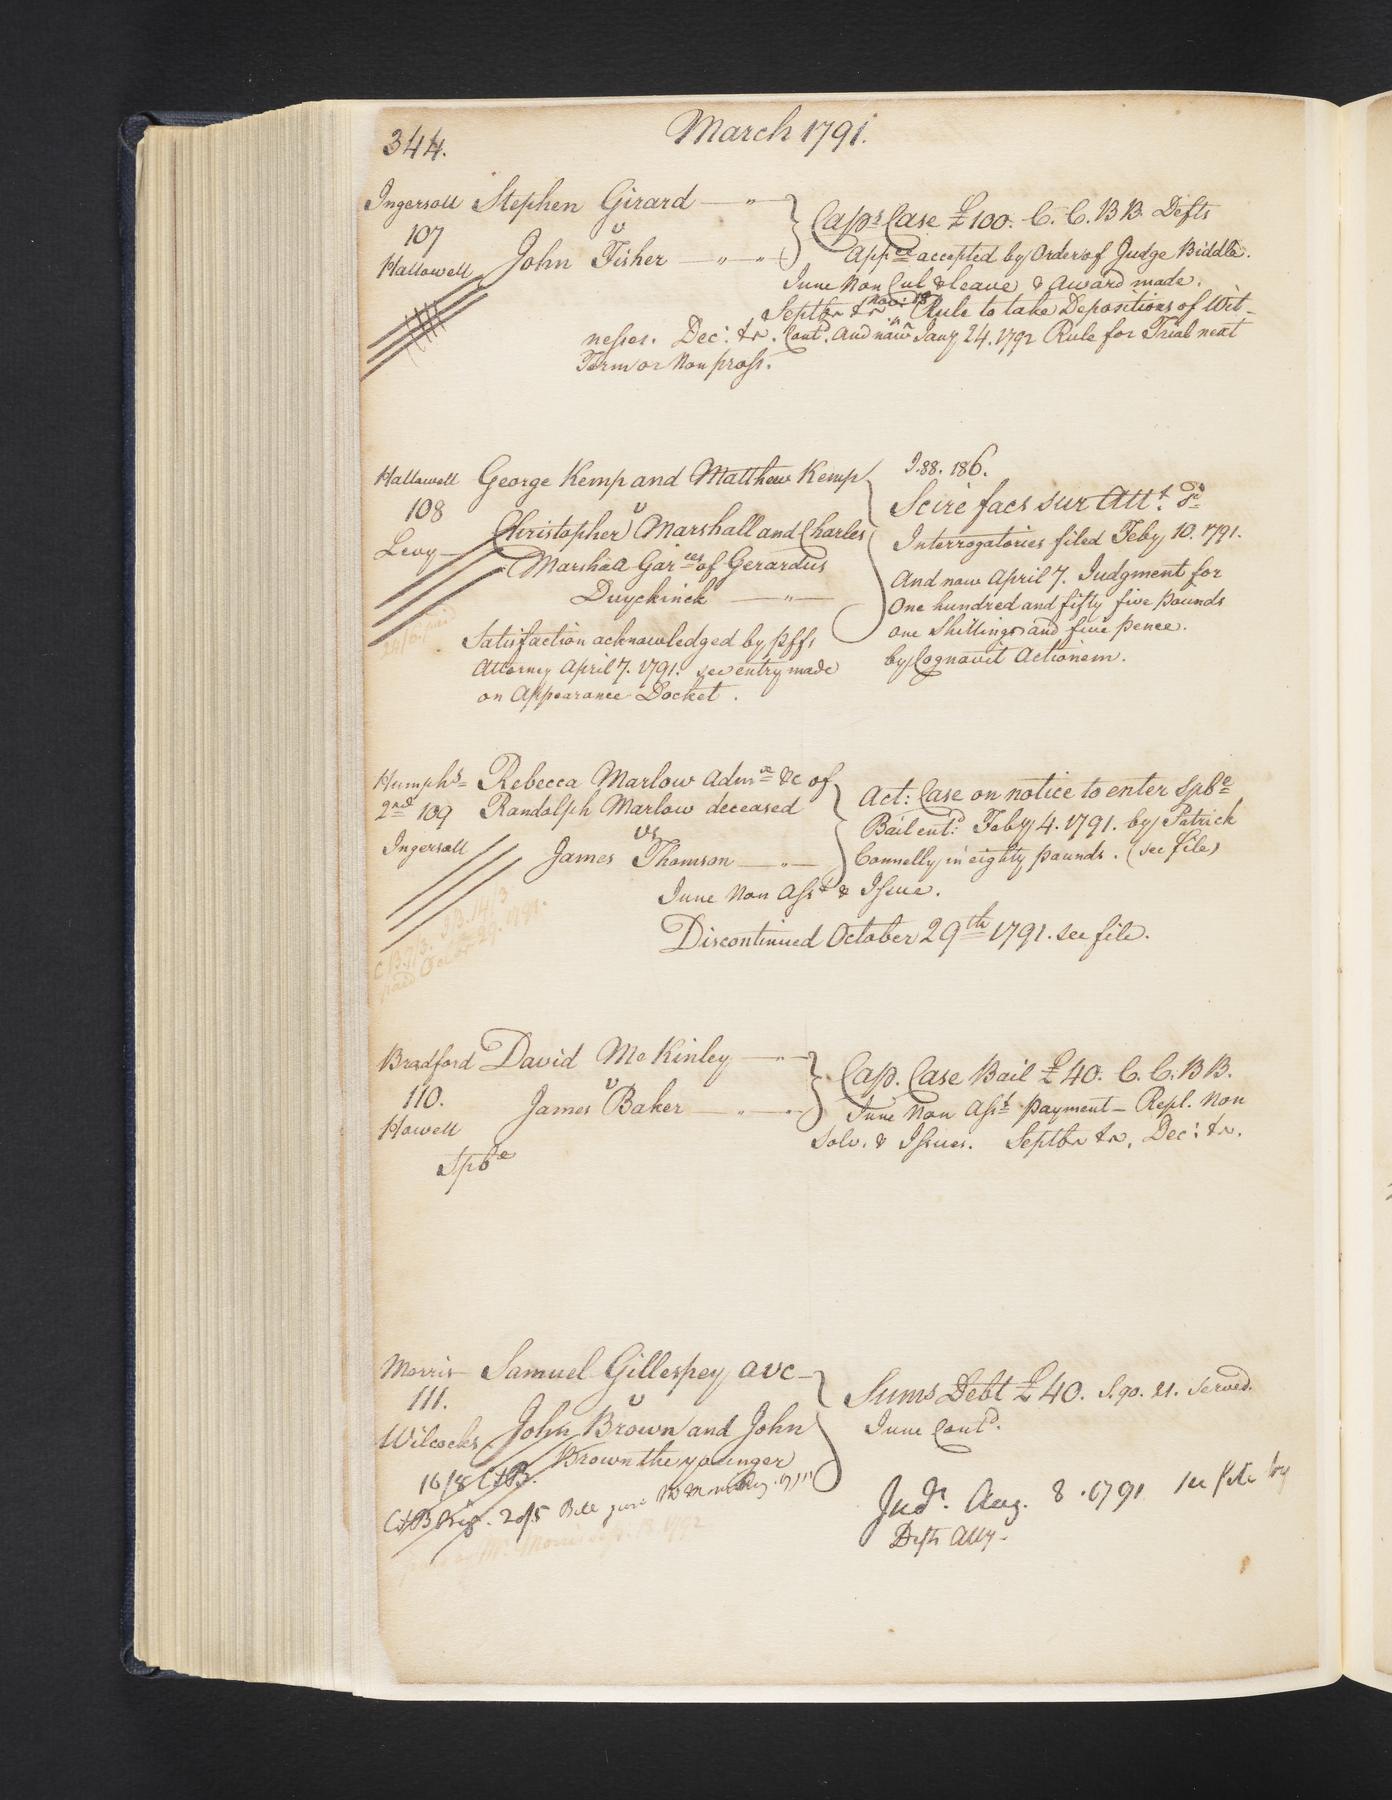 344.
March 1791.
Ingersoll Stephen Girard
107 v
Hallowell John Fisher
Caps Case £100. C. C. BB. Defts
Appce accepted by Order of Judge Biddle.
June Non Cul & leave & Award made.
Septbr tr Novr 18 Rule to take Depositions of Wit-
nesses. Dec: tr. Contd. And now Jany 24. 1792 Rule for Trial next
Term or Non pross.
Hallowell George Kemp and Matthew Kemp
108 v
Levy Christopher Marshall and Charles
Marshall Garees of Gerardus
Duyckinck
J. 88. 186.
Scire facs sur Attt. Sd
Interrogatories filed Feby 10. 1791.
And now April 7. Judgment for
One hundred and fifty five Pounds
one Shillings and five pence.
by Cognovit Actionem.
Satisfaction acknowledged by Plffs
Attorney April 7. 1791. see entry made
on Appearance Docket.
Humphs Rebecca Marlow Admx &c of
2nd 109 Randolph Marlow deceased
vs
Ingersoll James Thomson
Act: Case on notice to enter Spble
Bail entd: Feby 4. 1791. by Patrick
Connelly in eighty pounds. (see file)
June Non Asst & Issue.
Discontinued October 29th 1791. see file.
paid Octobr 29. 1791.
Bradford David McKinley
110. v
Howell James Baker
Spble
Cap. Case Bail £40. C. C. BB.
June Non Asst Payment - Repl. Non
Solv. & Issues. Septbr tr, Dec: tr.
Morris Samuel Gillespey
111. v
Wilcocks John Brown and John
Brown the younger
16/8 CtB.
Sums Debt £40. S. 90. 21. Served.
June Contd.
Judt. Aug. 8. 1791 see file by
Defts Atty.